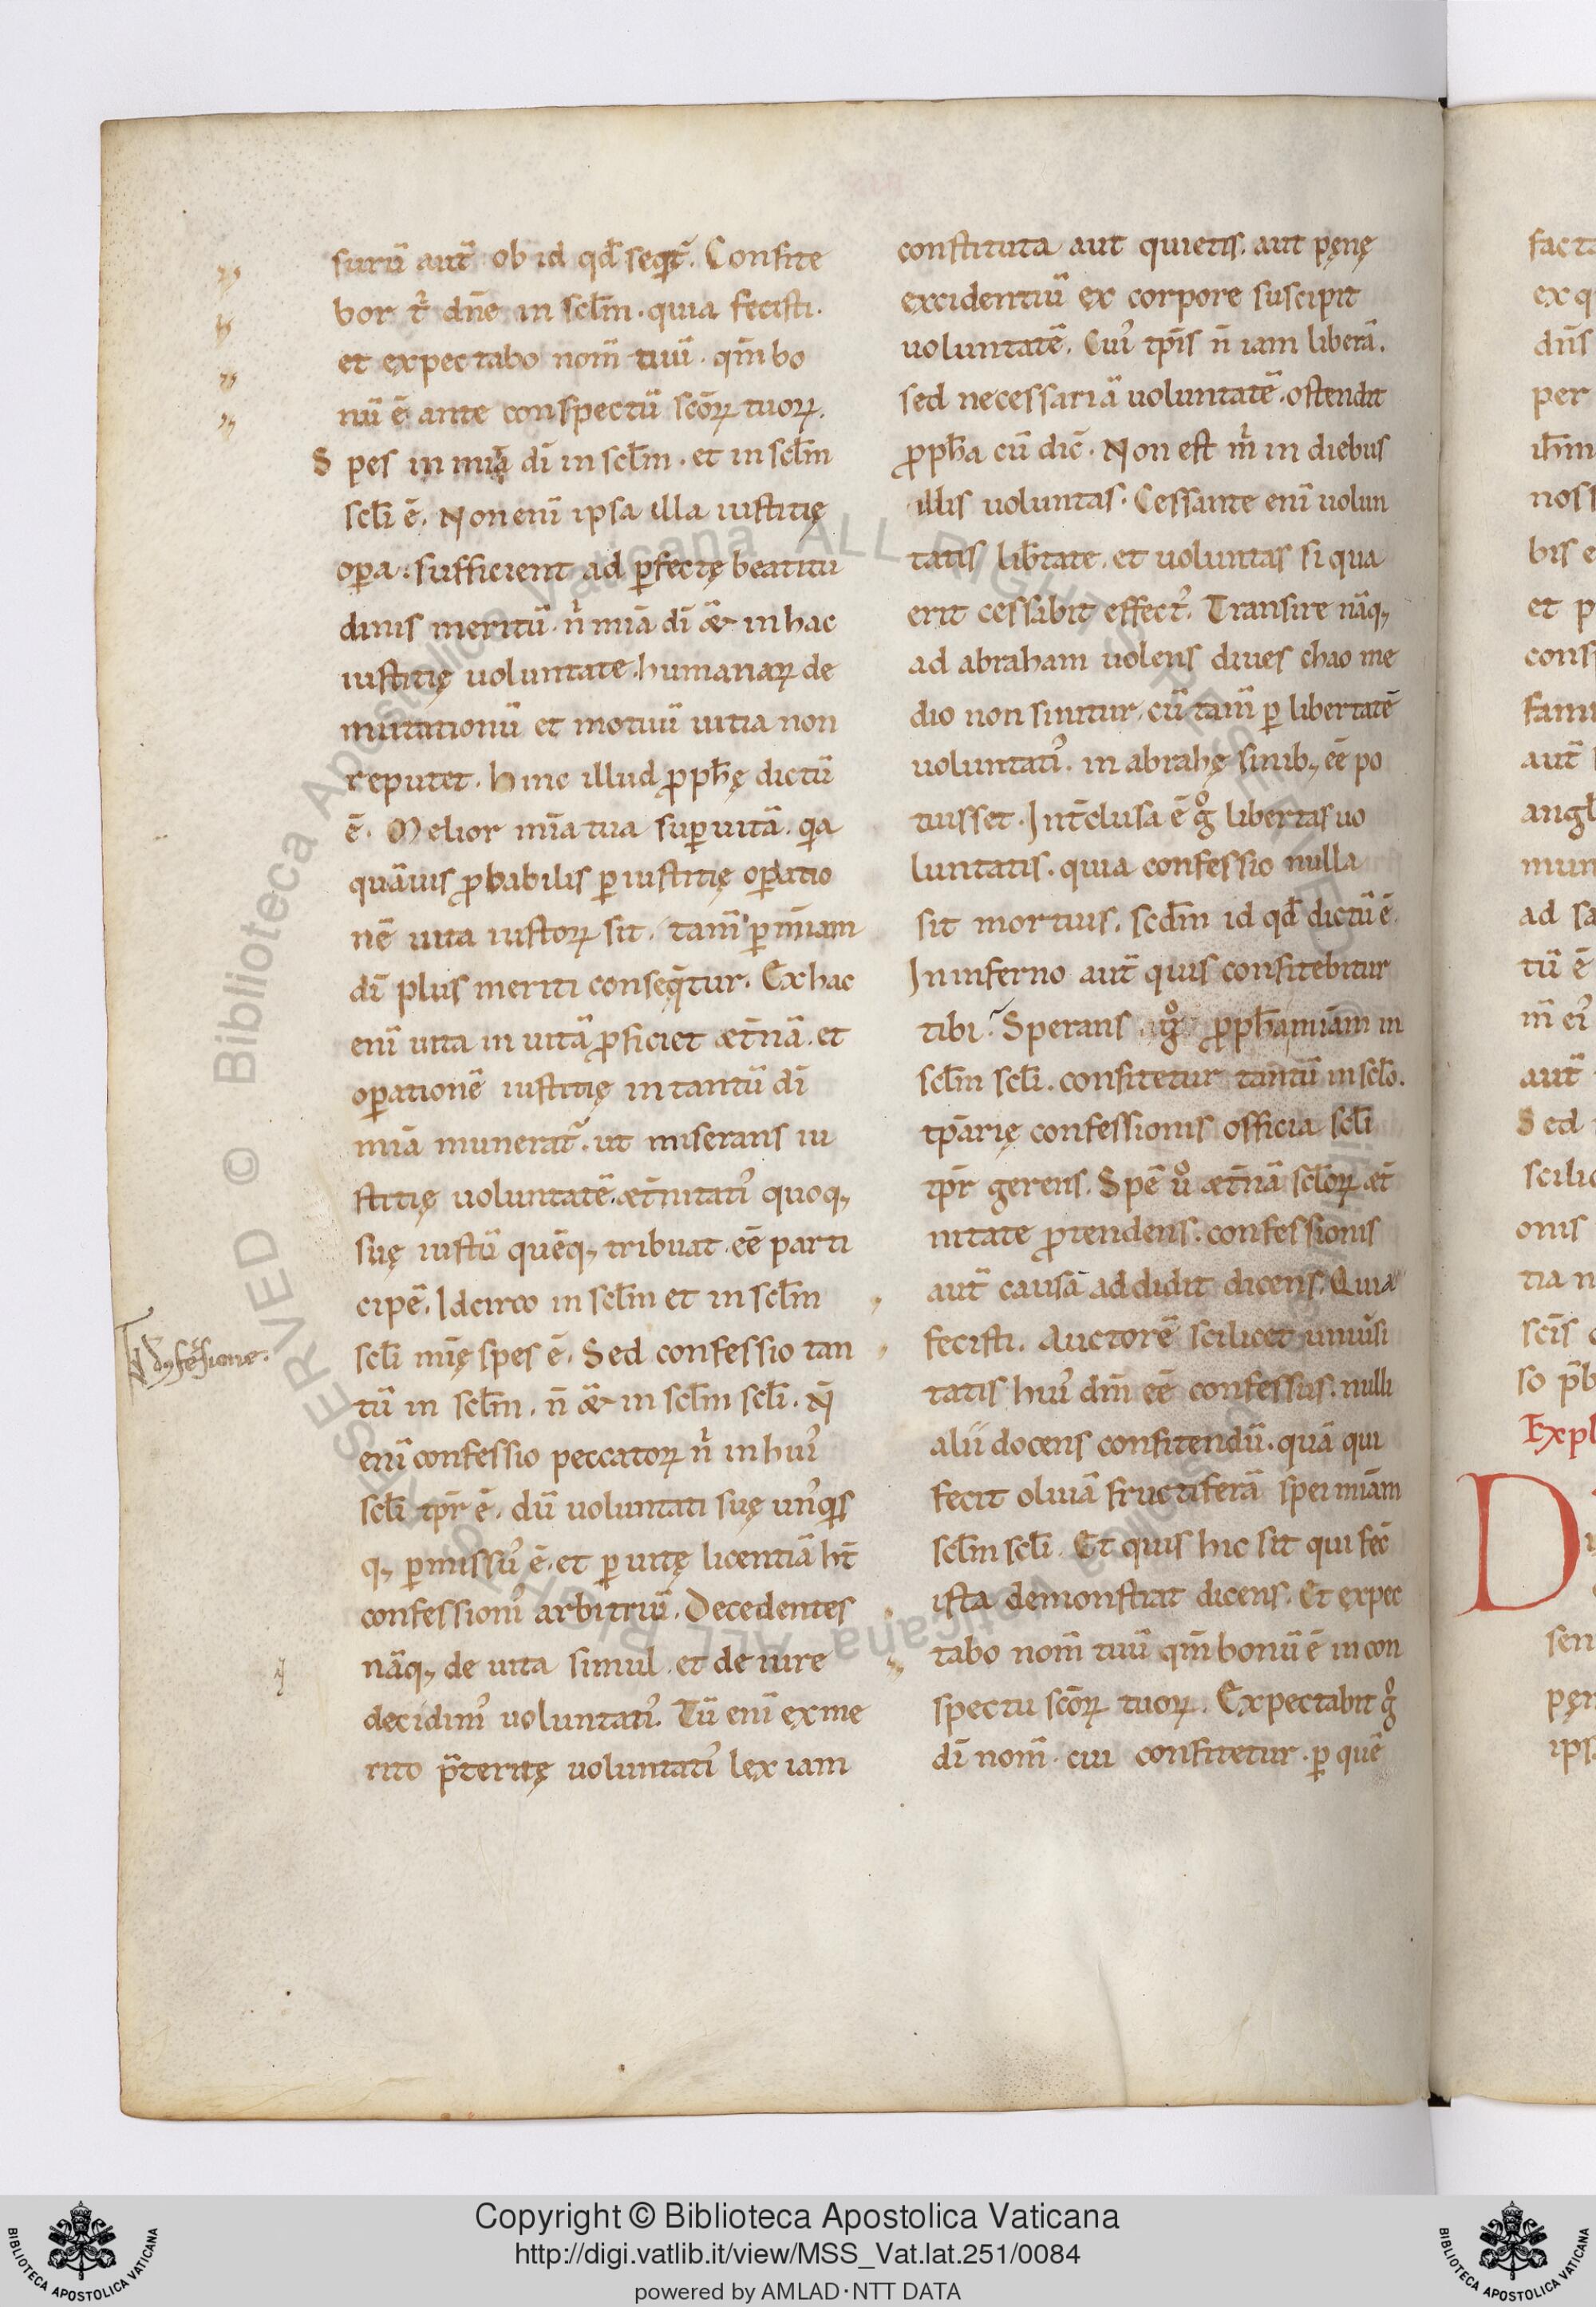 surū aut̄ ob id qd̄ seqͥt̄. Confite
bor t̓ dn̄e in scl̄m. quia fecisti.
et expectabo nom̄ tuū. qm̄ bo
nū ē ante conspectū sc̄oꝝ tuoꝝ.
Spes in mia di in scl̄m. et in scl̄m
scl̄i ē. Non enī ipsa illa iustitię
oꝑa. sufficient ad ꝑfectę beatitu
dinis meritū. n̓ mīa dī &̄ in hac
iustitię uoluntate. humanaꝝ de
mutationū et motuū uitia non
reputet. Hinc illud ꝓph̄ę dictū
ē. Melior mīa tua suꝑ uitā. qͥa
quāuis ꝓbabilis ꝑ iustitię oꝑatio
nē uita iustoꝝ sit. tam̄ ꝑ mīam
dī plus meriti conseq̄tur. Ex hac
enī uita in uitā ꝓficiet æt̄nā. et
oꝑationē iustitię in tantū dī
mīa munerat̄. ut miserans iu
stitię uoluntatē. æt̄nitatiꝰ quoqꝫ
suę iustū quēqꝫ tribuat. eē parti
cipē. Idcirco in scl̄m et in scl̄m
scl̄i mīę spes ē. Sed confessio tan
tū in scl̄m. n̄ &̄ in scl̄m scl̄i. N̄
enī confessio peccatoꝝ n̓ in huiꝰ
scl̄i tp̄r ē. dū uoluntati suę unꝰqͥs
qꝫ ꝑmissuꝰ ē. et ꝑ uitę licentiā ht̄
confessioniꝰ arbitriū. Decedentes
nāqꝫ de uita simul. et de iure
decidimꝰ uoluntatiꝰ. Tū enī ex me
rito p̄teritę uoluntatiꝰ lex iam
constituta aut quietis. aut pęnę
excidentiū ex corpore suscipit
uoluntatē. Cuiꝰ tp̄is n̄ iam liberā.
sed necessariā uoluntatē. ostendit
ꝓph̄a cū dic̄. Non est m̓ in diebus
illis uoluntas. Cessante enī uolun
tatis lib̄tate. et uoluntas si qua
erit cessabit effectꝰ. Transire nāqꝫ
ad abraham uolens diues chao me
dio non sinitur. cū tam̄ ꝑ libertatē
uoluntatiꝰ. in abrahę sinibꝫ eē po
tuisset. Int̄clusa ē gͦ libertas uo
luntatis. quia confessio nulla
sit mortuis. scdm̄ id qd̄ dictū ē.
In inferno aut̄ quis confitebitur
tibi. Sperans gͦ ꝓph̄a miām in
scl̄m scl̄i. confitetur tantū in scl̄o.
tp̄arię confessionis officia scl̄i
tp̄r gerens. Spē uͦ æt̄nā scl̄oꝝ æt̄
nitate ꝓtendens. confessionis
aut̄ causā addidit dicens. Quia
fecisti. Auctorē scilicet uniūsi
tatis huiꝰ dm̄ eē confessus. nulli
alii docens confitendū. quā qui
fecit oliuā fructiferā spei miām
scl̄m scl̄i. Et quis hic sit qui fec̄
ista demonstrat dicens. Et expec
tabo nom̄ tuū qm̄ bonū ē in con
spectu sc̄oꝝ tuoꝝ. Expectabit gͦ
dī nom̄. cui confitetur. ꝑ quē
Expl
D
Copyright © Biblioteca Apostolica Vaticana
http://digi.vatlib.it/view/MSS_Vat.lat.251/0084
powered by AMLAD·NTT DATA
BIBLIOTECA APOSTOLICA VATICANA
BIBLIOTECA APOSTOLICA VATICANA